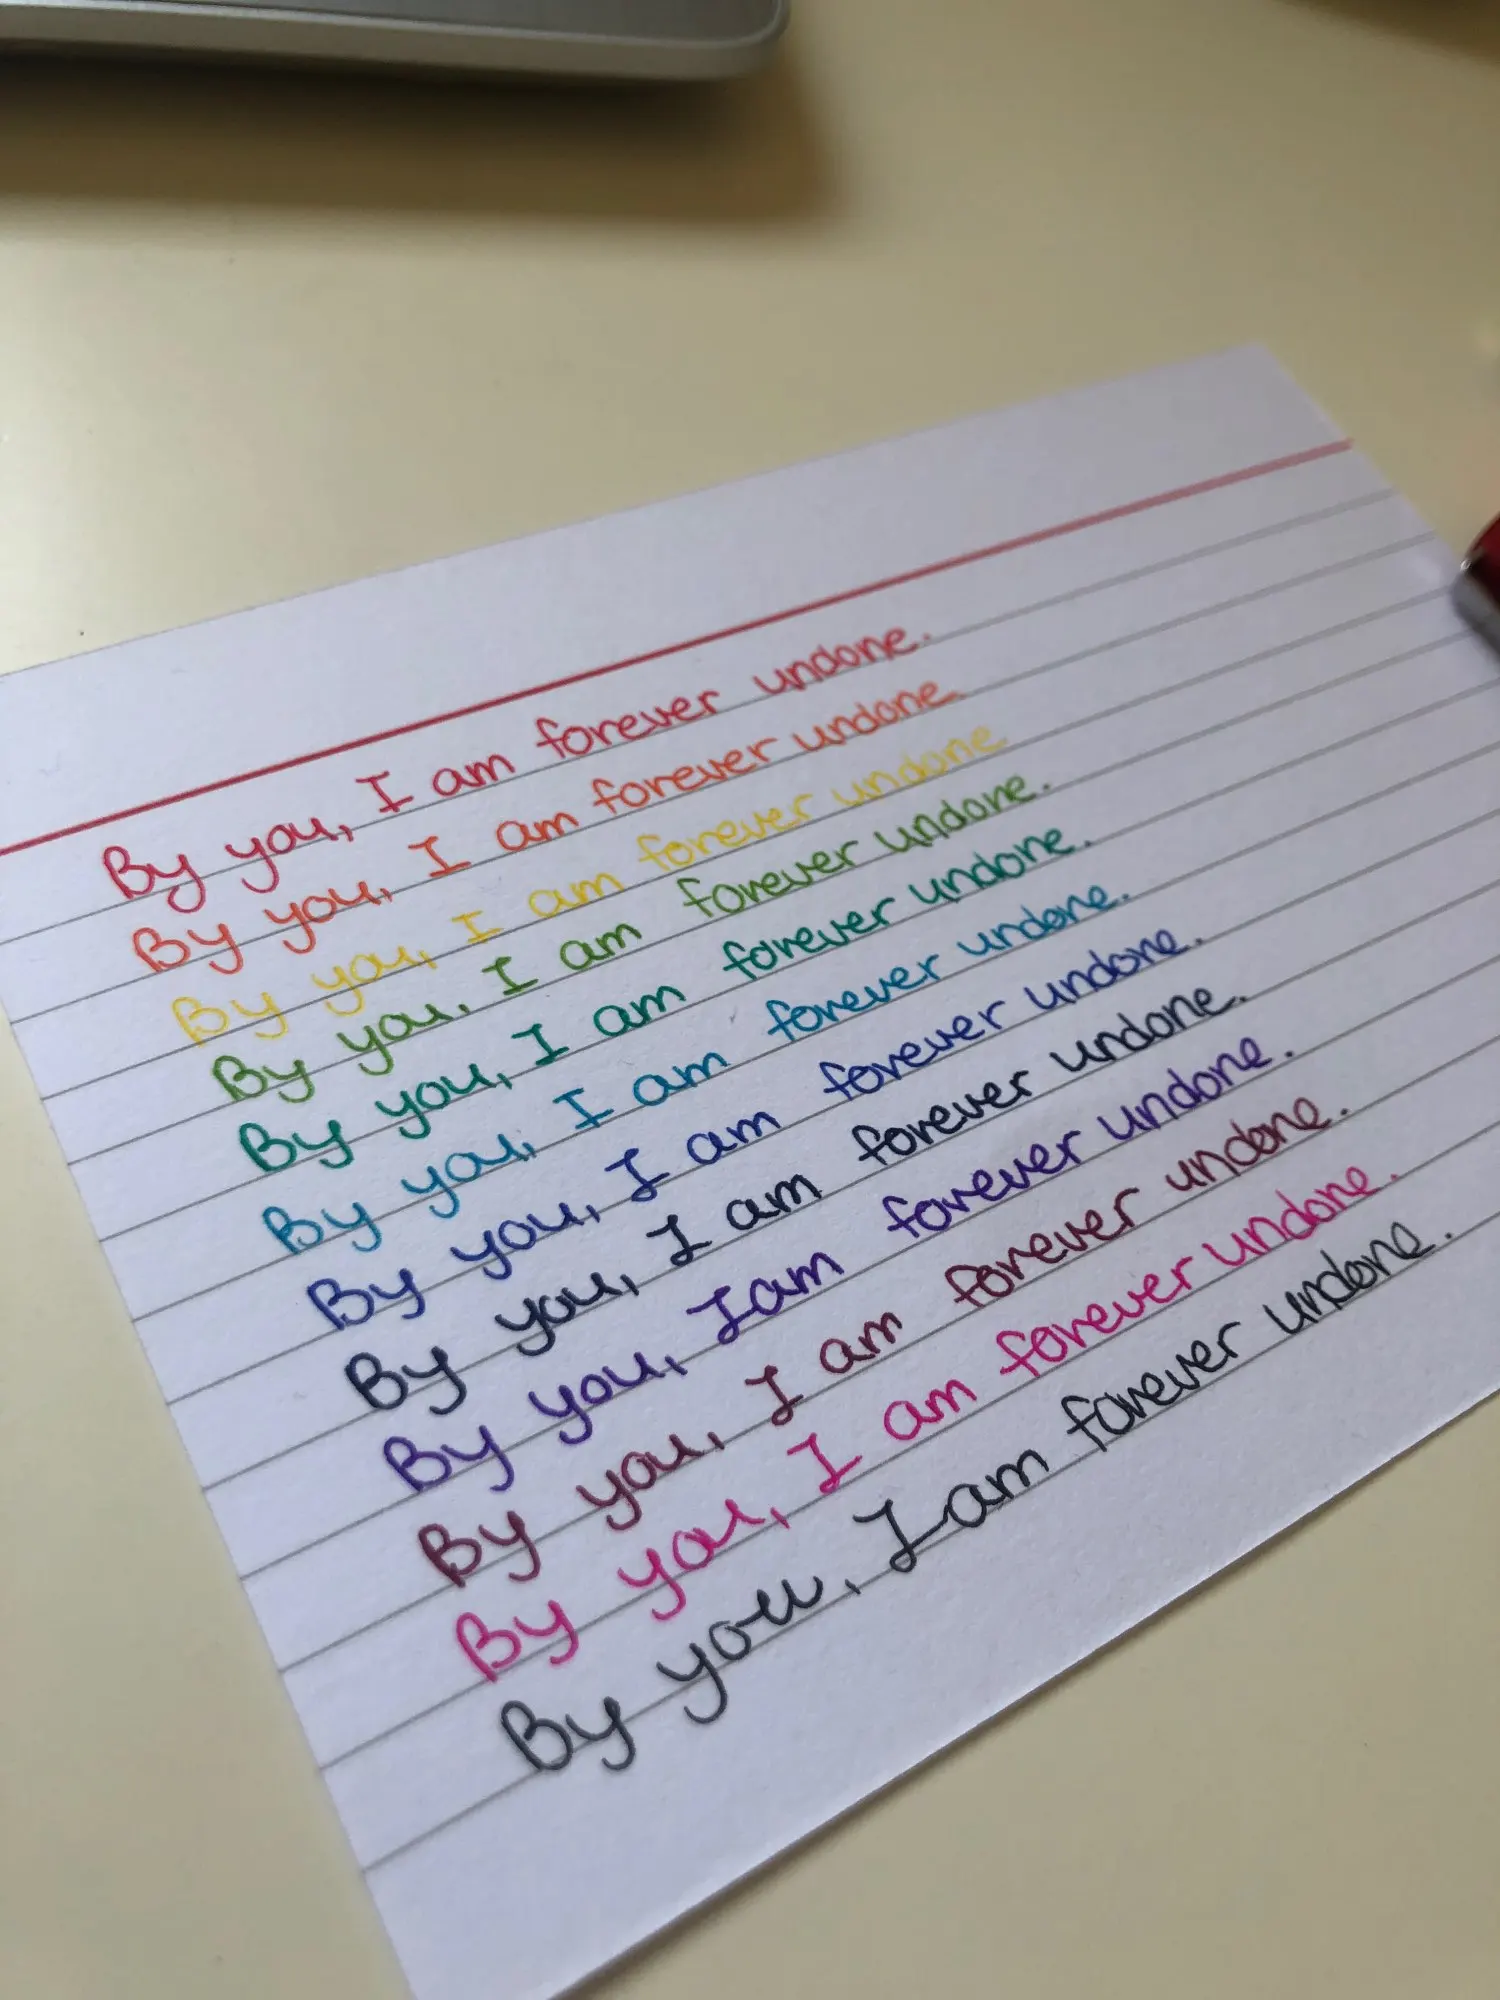 By you, I am forever undone.
By you, I am forever undone.
By you, I am forever undone
By you, I am forever undone.
By you, I am forever undone.
By you, I am forever undone.
By you, I am forever undone.
By you, I am forever undone.
By you, I am forever undone.
By you, I am forever undone.
By you, I am forever undone.
By you, I am forever undone.